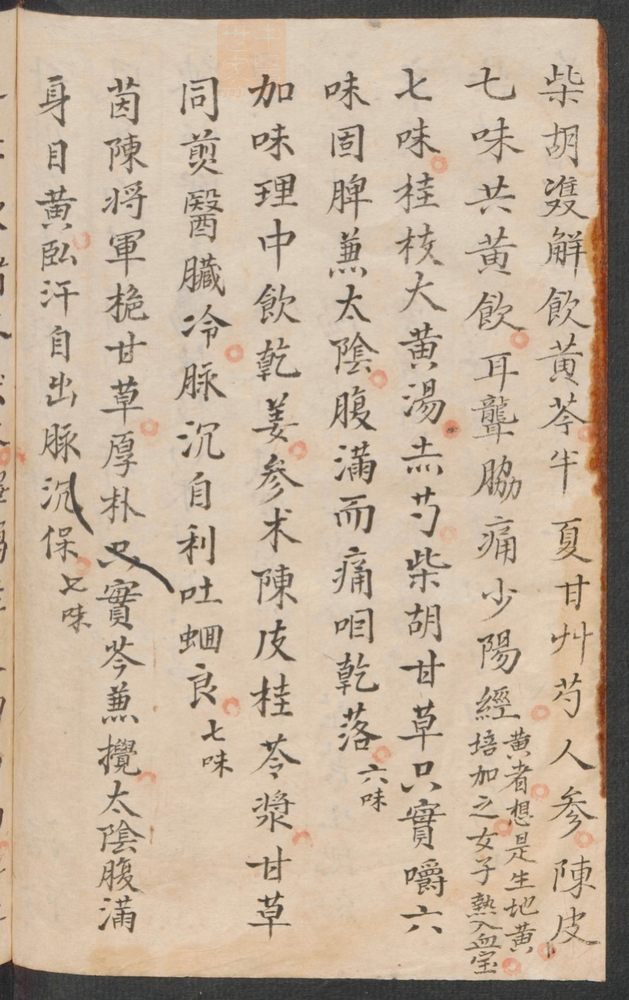 柴胡雙解飲黄芩半夏甘艸芍人參陳皮
七味共黄飲耳聾脇痛少陽經
黄者想是生地黄
培加之女子熱入血室
七味桂枝大黄湯赤芍柴胡甘草只實嚼六
味固脾兼太陰腹滿而痛咽乾落六味
加味理中飲乾姜參术陳皮桂苓漿甘草
同煎醫臟冷脉沉自利吐蛔良七味
茵陳将軍桅甘草厚朴只實芩兼攪太陰腹滿
身目黄臥汗自出脉沉保七味